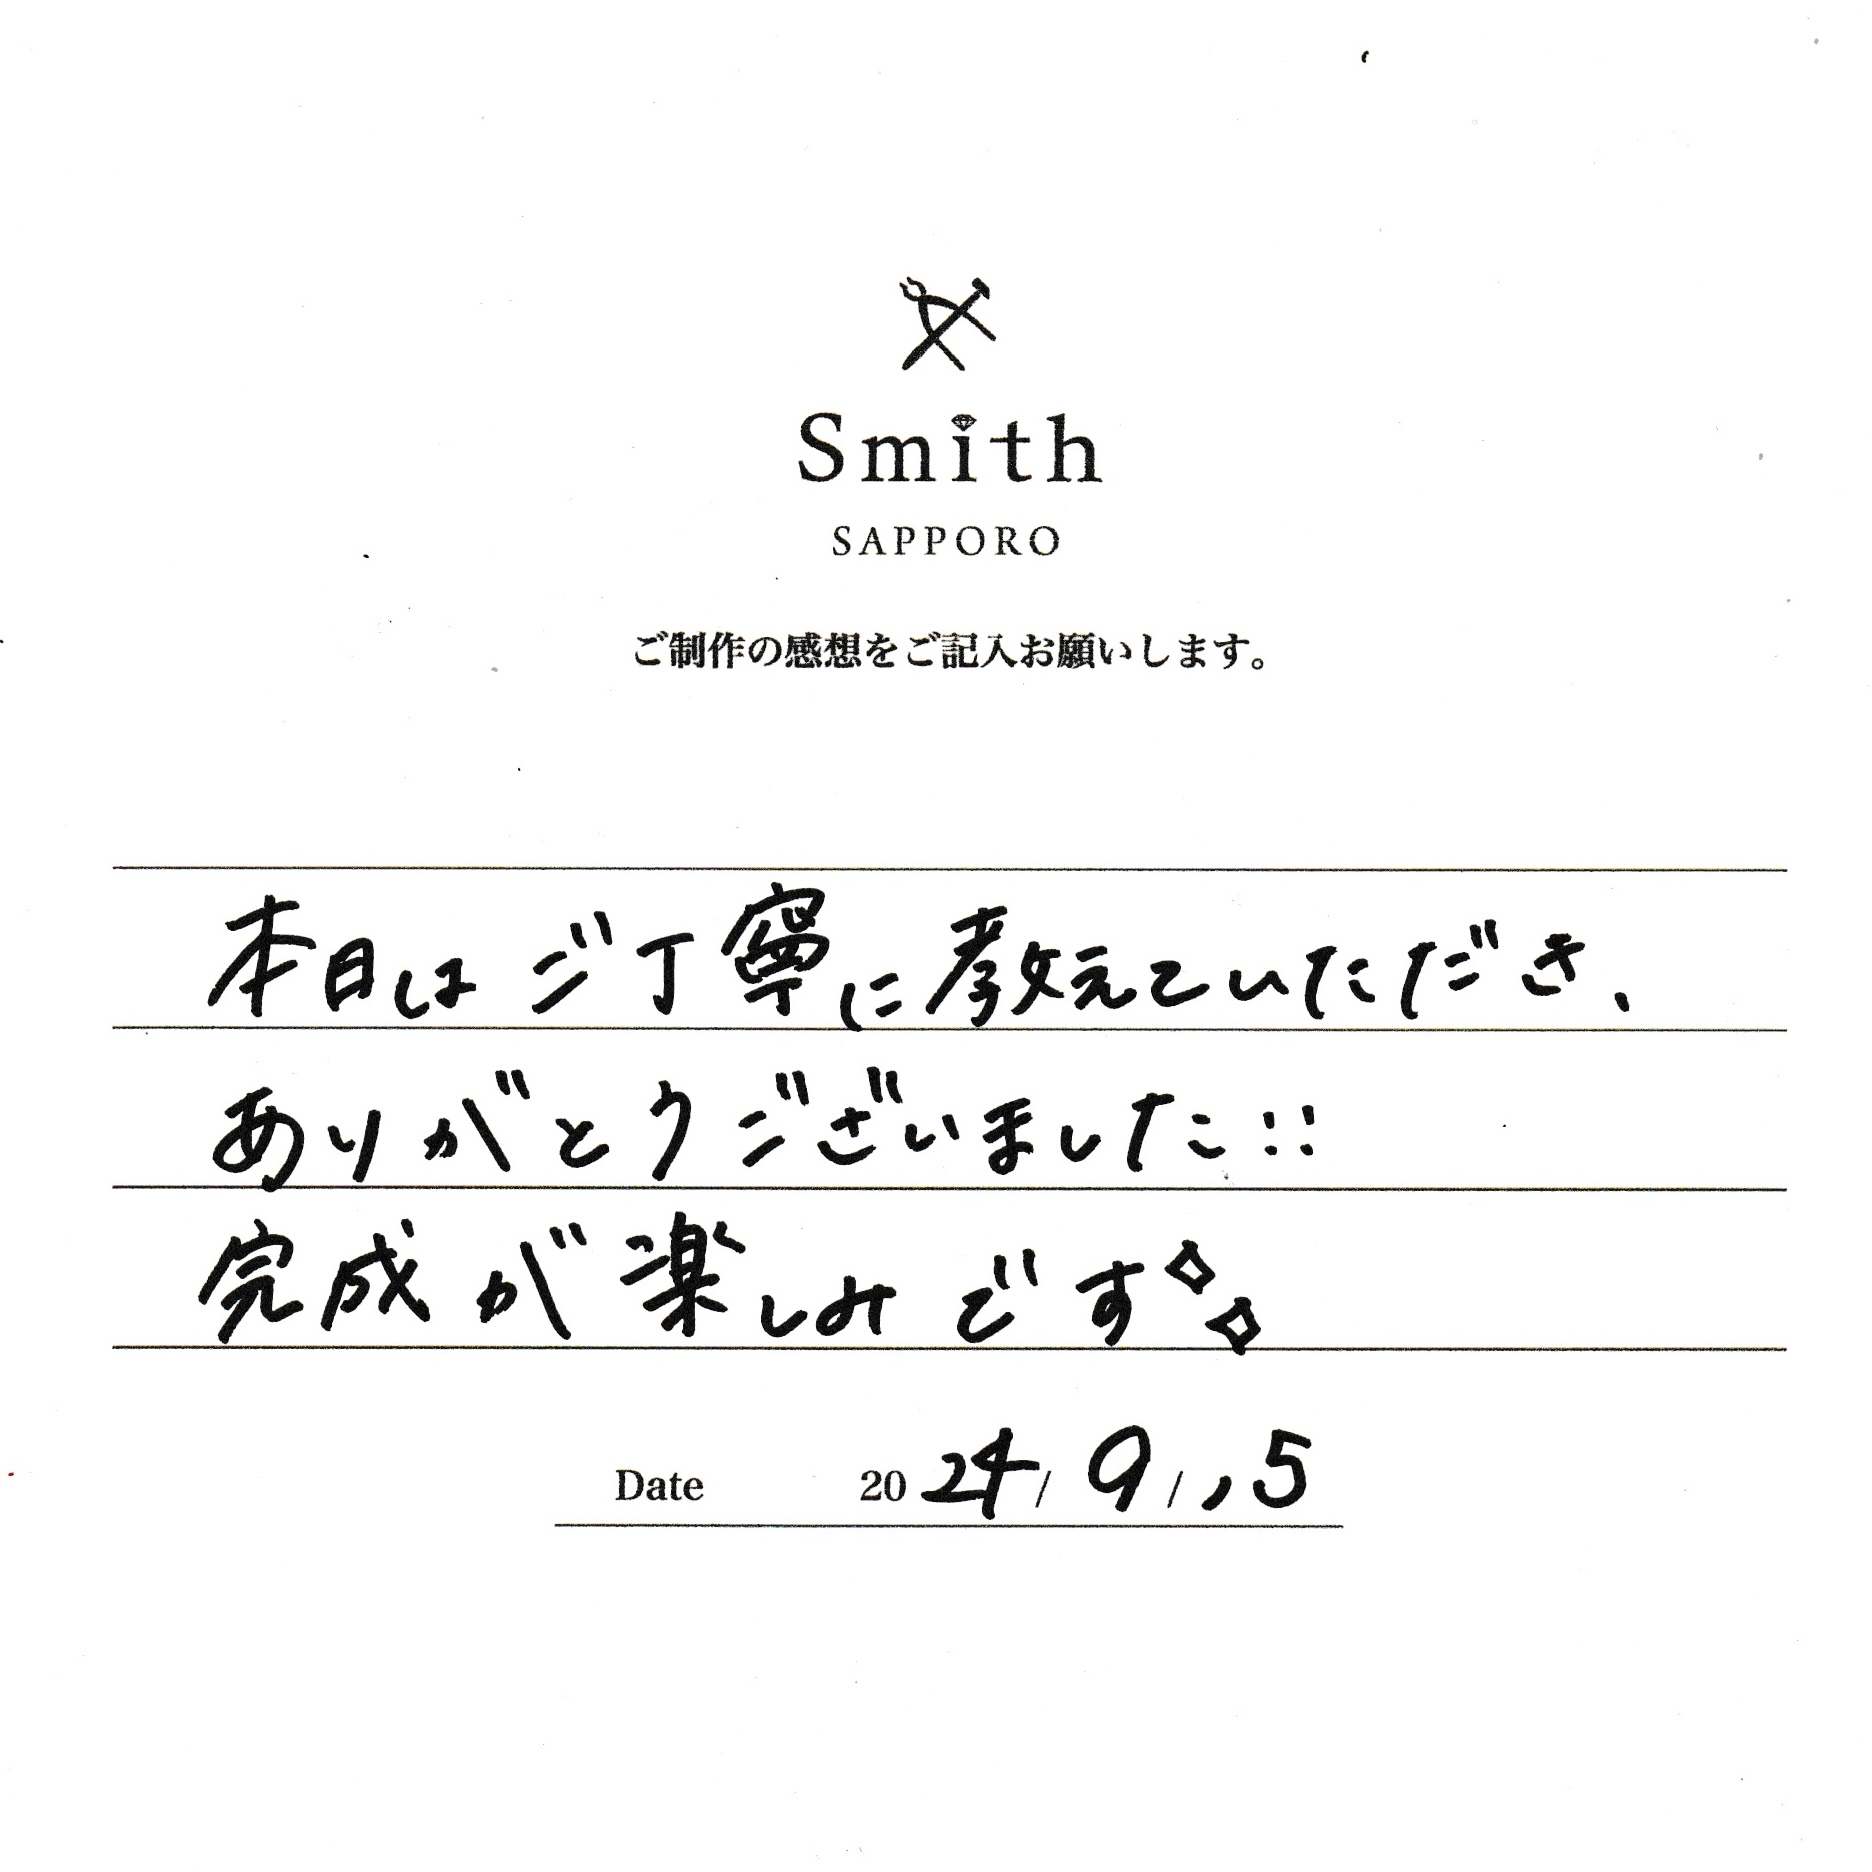 Smith
SAPPORO
ご制作の感想をご記入お願いします。
本日はご丁寧に教えていただき、
ありがとうございました!!
完成が楽しみです✧✧
Date 2024/9/15